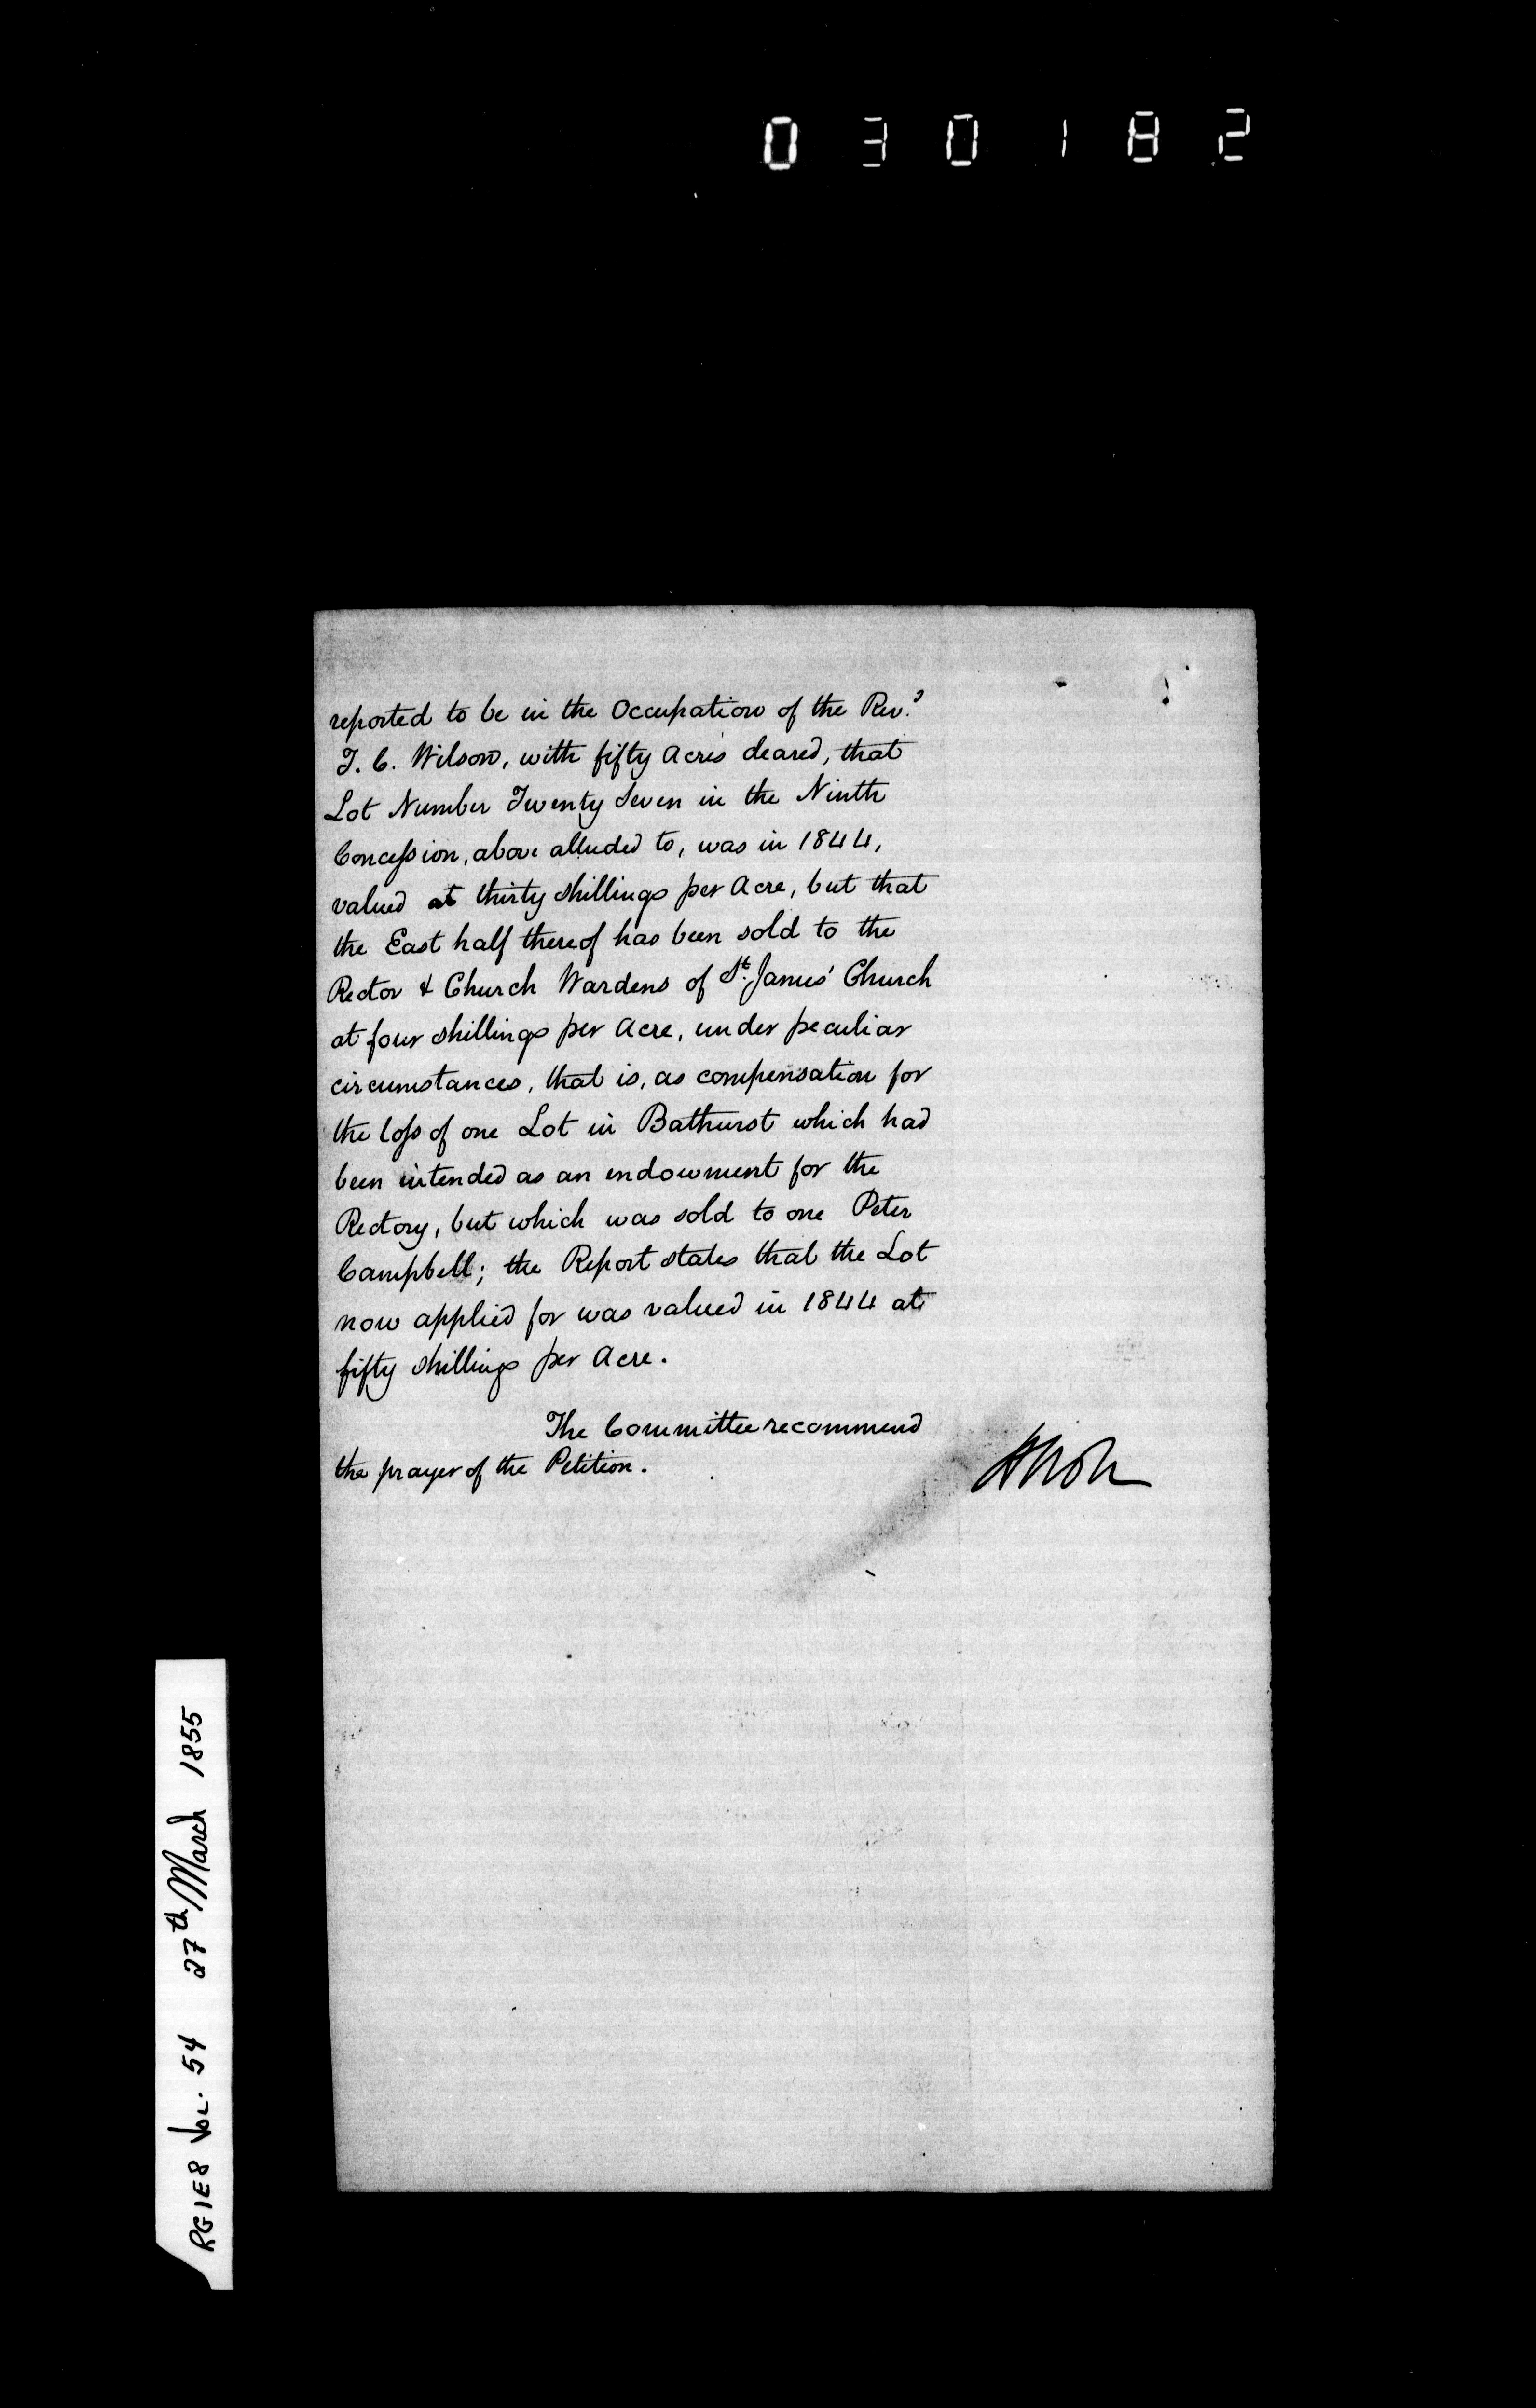 030182
reported to be in the Occupation of the Rev.d
T. C. Wilson, with fifty Acres cleared, that
Lot Number Twenty Seven in the Ninth
Concession, above alluded to, was in 1844,
valued at thirty shillings per Acre, but that
the East half thereof has been sold to the
Rector & Church Wardens of St. James' Church
at four shillings per Acre, under peculiar
circumstances, that is, as compensation for
the loss of one Lot in Bathurst which had
been intended as an endowment for the
Rectory, but which was sold to one Peter
Campbell; the Report states that the Lot
now applied for was valued in 1844 at
fifty shillings per Acre.
The Committee recommend
the prayer of the Petition.
RG1E8 Vol. 54 27th March 1855